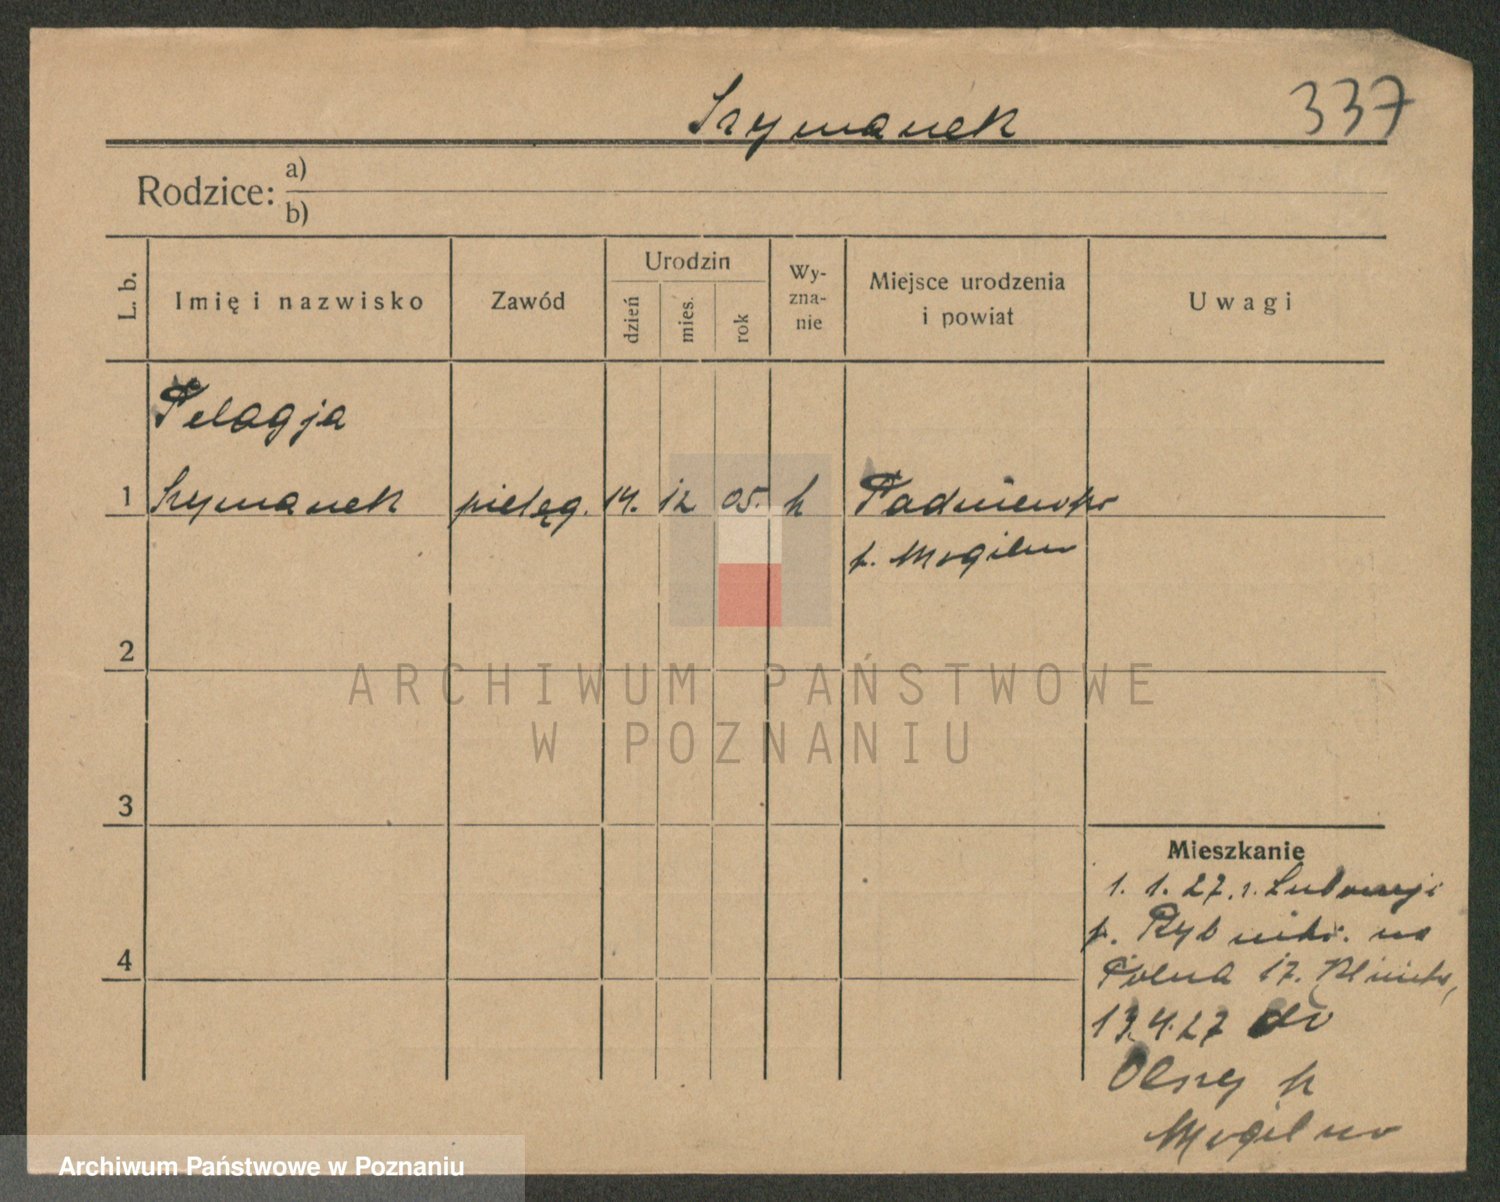 Szymanek 337
Rodzice: a)
b)
L. b.
Imię i nazwisko
Zawód
Urodzin
dzień
mies.
rok
Wy-
zna-
nie
Miejsce urodzenia
i powiat
Uwagi
Pelagja
1 Szymanek pielęg. 14. 12 05. k Padniewko
p. Mogilno
2
ARCHIWUM PAŃSTWOWE
W POZNANIU
3
Mieszkanie
1. 1. 27. z
p. Rybnik. na
4
Polna 17. Klinika,
13.4.27 do
Olszy p
Mogilno
Archiwum Państwowe w Poznaniu